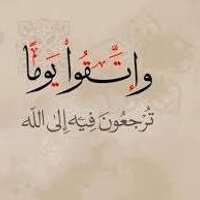 وَاتَّقُوا۟ يَوْمًا
تُرْجَعُونَ فِيهِ إِلَى اللَّه